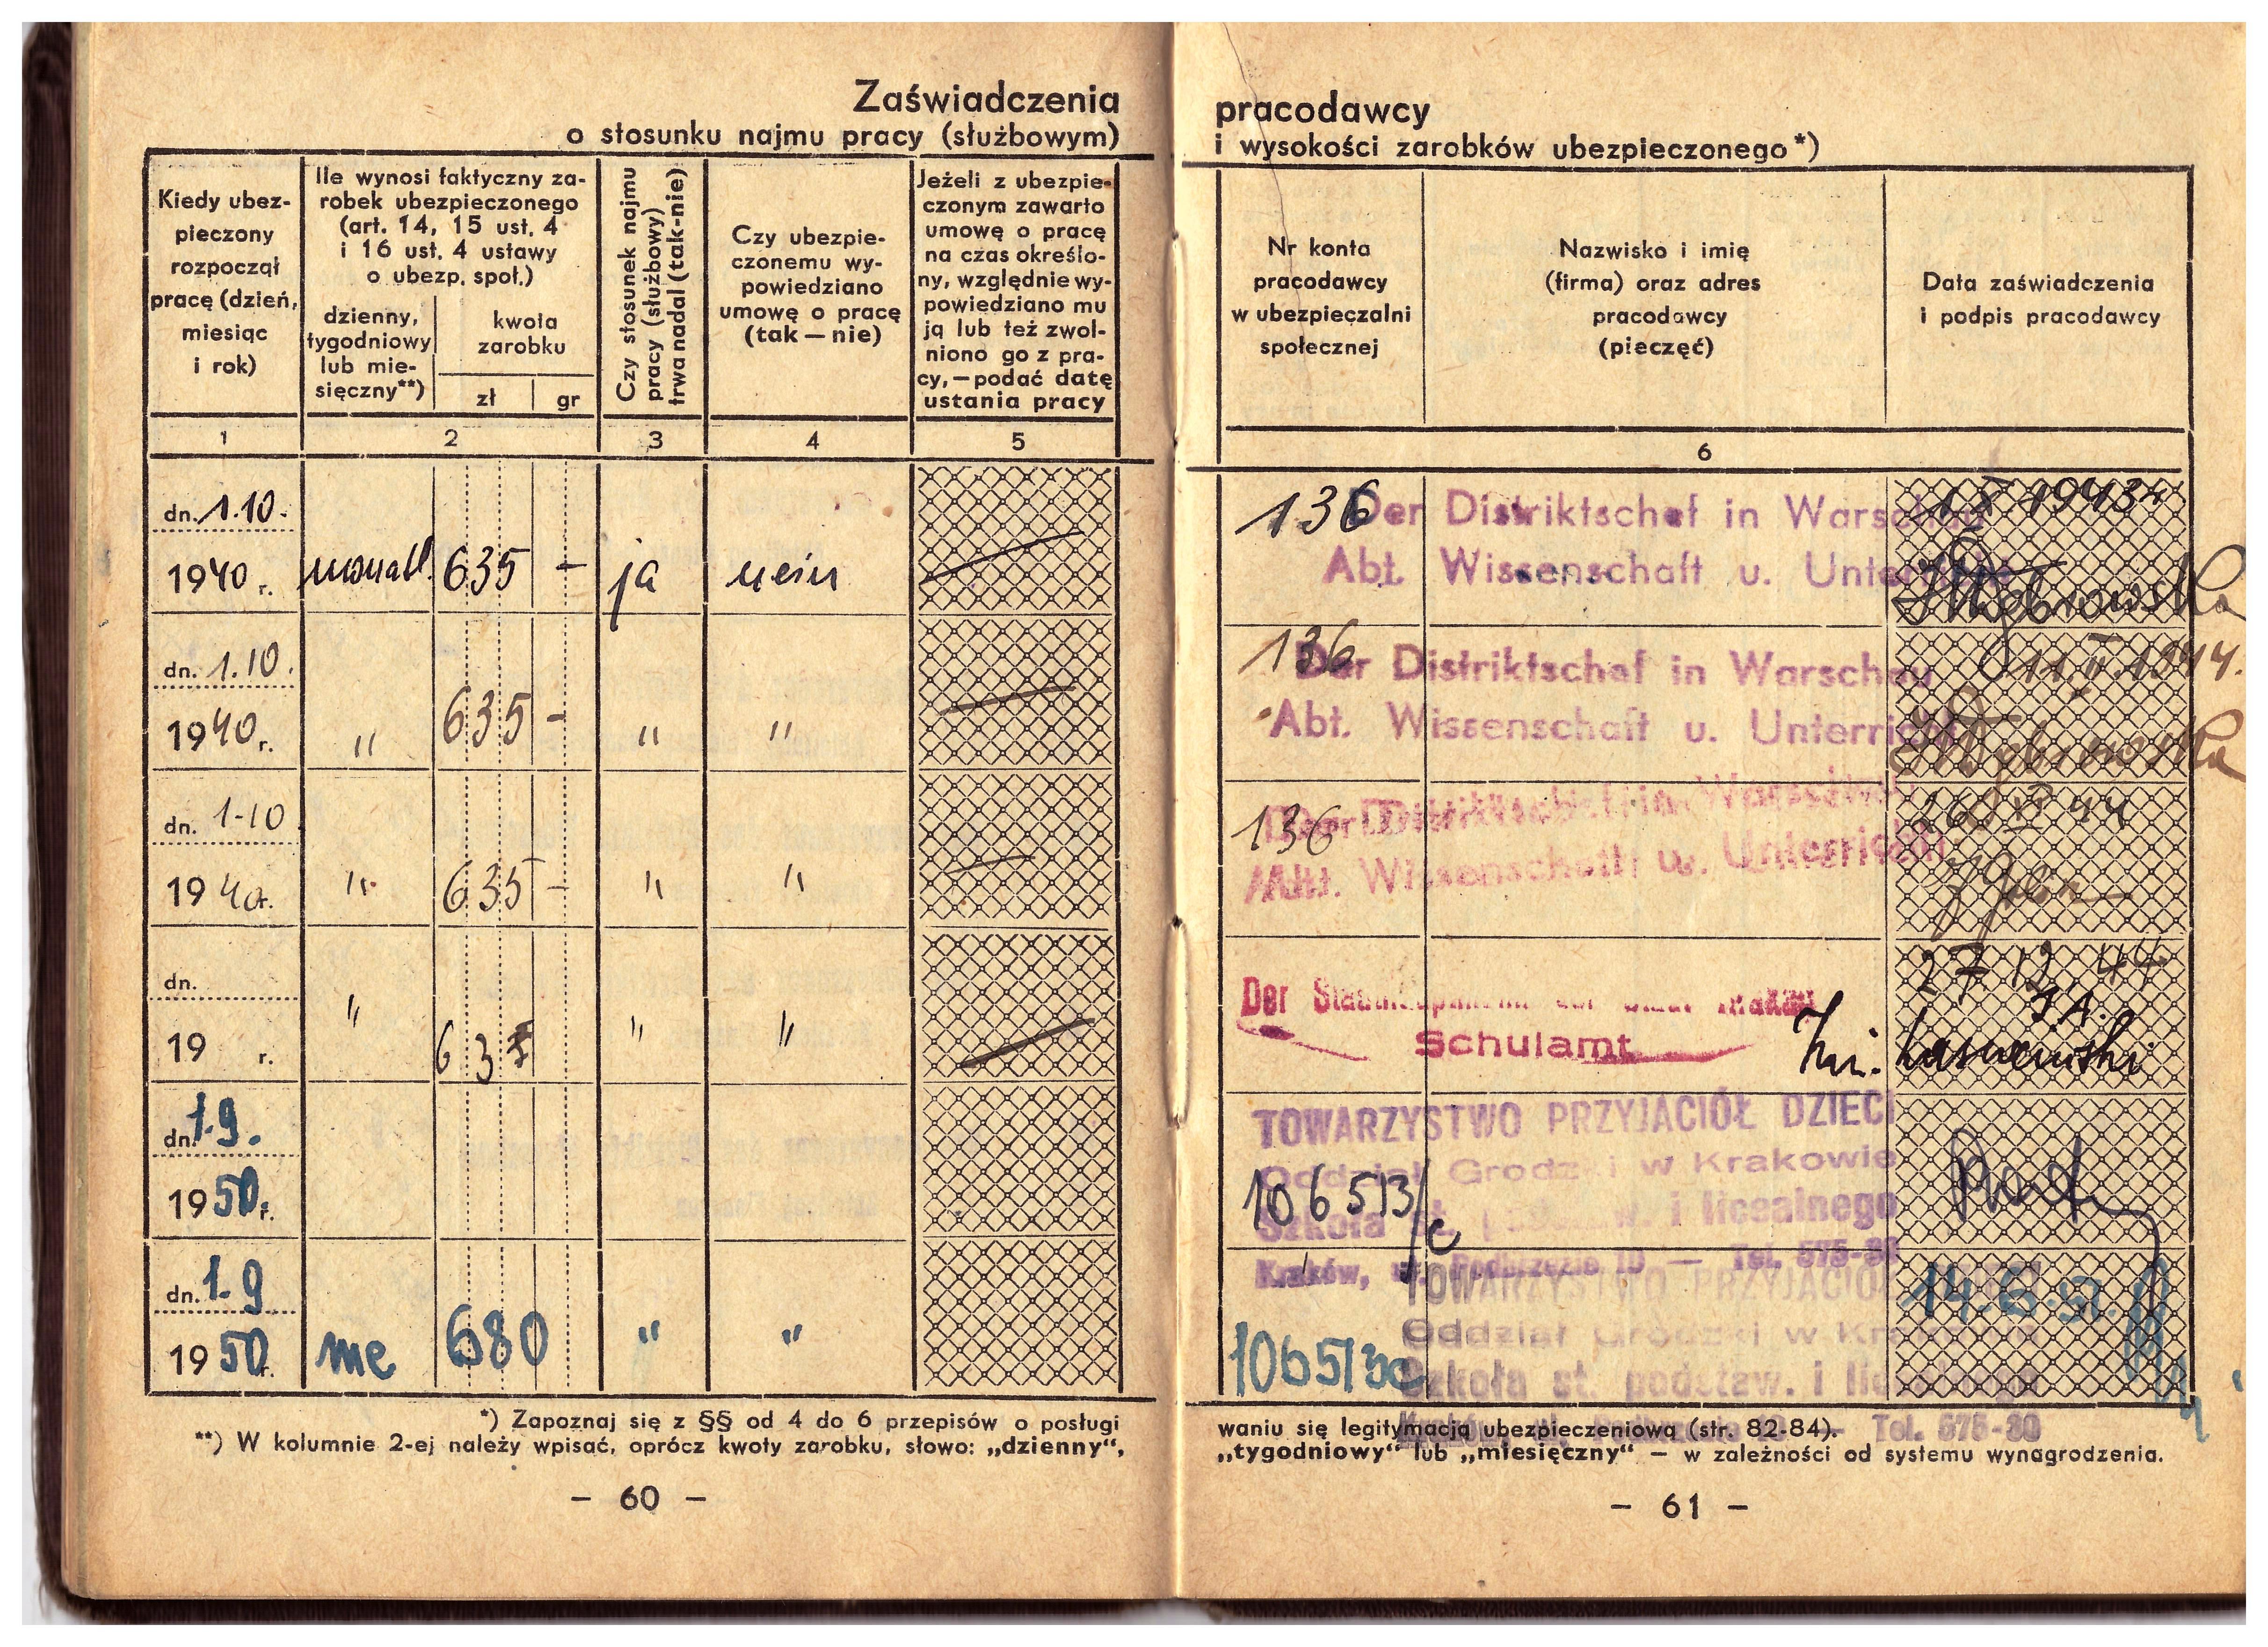 Zaświadczenia
o stosunku najmu pracy (służbowym)
Kiedy ubez-
pieczony
rozpoczął
pracę (dzień,
miesiąc
i rok)
Ile wynosi faktyczny za-
robek ubezpieczonego
(art. 14, 15 ust. 4
i 16 ust. 4 ustawy
o ubezp. społ.)
dzienny,
tygodniowy
lub mie-
sięczny**)
kwota
zarobku
zł gr
Czy stosunek najmu
pracy (służbowy)
trwa nadal (tak-nie)
Czy ubezpie-
czonemu wy-
powiedziano
umowę o pracę
(tak — nie)
Jeżeli z ubezpie-
czonym zawarto
umowę o pracę
na czas określo-
ny, względnie wy-
powiedziano mu
ją lub też zwol-
niono go z pra-
cy, — podać datę
ustania pracy
1 2 3 4 5
dn. 1.10.
1940 r. monatl. 635 – ja nein
dn. 1.10.
1940 r. " 635 – " "
dn. 1-10
1940 r. " 635 – " "
dn.
19 r. " 635 " "
dn. 1.9.
1950 r.
dn. 1.9
1950 r. me 680 " "
*) Zapoznaj się z §§ od 4 do 6 przepisów o posługi
**) W kolumnie 2-ej należy wpisać, oprócz kwoty zarobku, słowo: „dzienny",
— 60 —
pracodawcy
i wysokości zarobków ubezpieczonego*)
Nr konta
pracodawcy
w ubezpieczalni
społecznej
Nazwisko i imię
(firma) oraz adres
pracodawcy
(pieczęć)
Data zaświadczenia
i podpis pracodawcy
6
136 Der Distriktschef in Warschau
Abt. Wissenschaft u. Unterricht
136 Der Distriktschef in Warschau 11.II.1944.
Abt. Wissenschaft u. Unterricht
136 Der Distriktschef in Warschau
Abt. Wissenschaft u. Unterricht
27 12. 44
Der
Schulamt
TOWARZYSTWO PRZYJACIÓŁ DZIECI
Oddział Grodzki w Krakowie
106513/c
Szkoła st. podstaw. i licealnego
Kraków, ul. Podbrzezie 10 — Tel. 575-30
TOWARZYSTWO PRZYJACIÓŁ
14.6.51.
Oddział Grodzki w Krakowie
106513c
Szkoła st. podstaw. i licealnego
Tel. 575-30
waniu się legitymacją ubezpieczeniową (str. 82-84).
„tygodniowy" lub „miesięczny" — w zależności od systemu wynagrodzenia.
— 61 —